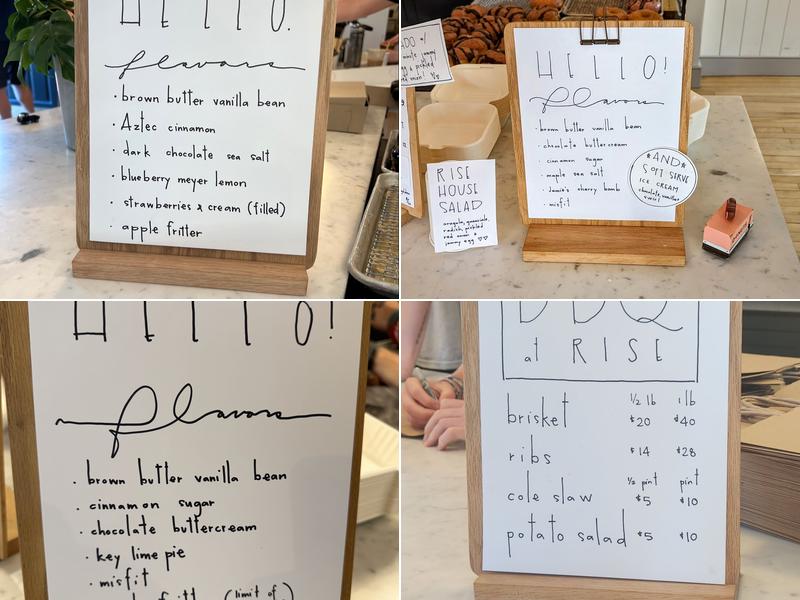 HELLO.
flavors
· brown butter vanilla bean
· Aztec cinnamon
· dark chocolate sea salt
· blueberry meyer lemon
· strawberries & cream (filled)
· apple fritter
HELLO!
flavors
· brown butter vanilla bean
· chocolate buttercream
· cinnamon sugar
· maple sea salt
· Jamie's cherry bomb
· misfit
*AND*
SOFT SERVE
ICE CREAM
chocolate, vanilla
swirl
RISE
HOUSE
SALAD
arugula, guanciale,
radish, pickled
red onion &
jammy egg
HELLO!
flavors
· brown butter vanilla bean
· cinnamon sugar
· chocolate buttercream
· key lime pie
· misfit
(limit of)
BBQ
at RISE
1/2 lb 1 lb
brisket $20 $40
ribs $14 $28
1/2 pint pint
cole slaw $5 $10
potato salad $5 $10